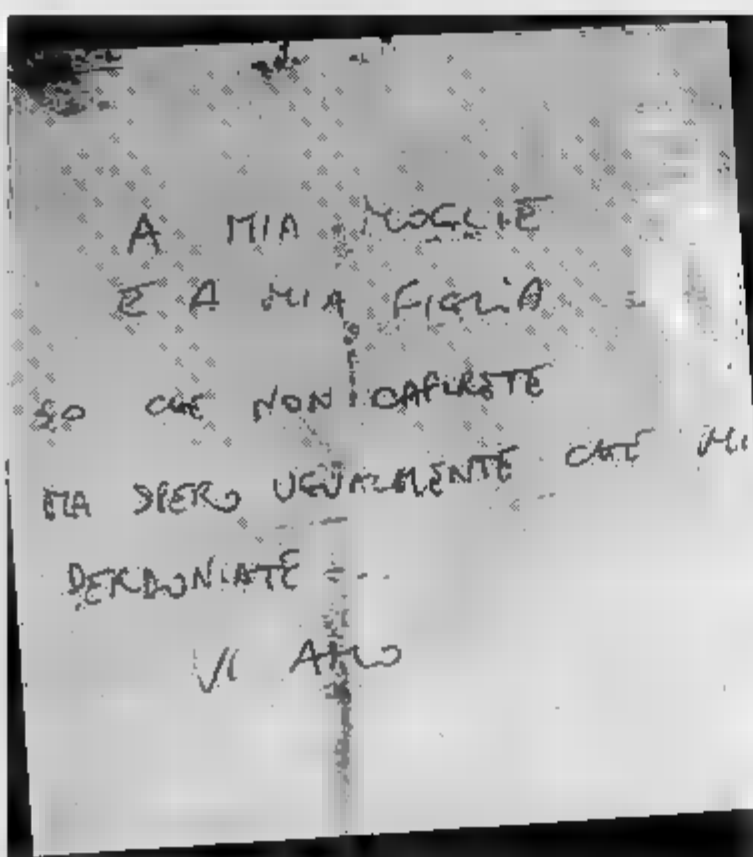 A MIA MOGLIE
E A MIA FIGLIA
SO CHE NON CAPIRETE
MA SPERO UGUALMENTE CHE MI
PERDONIATE
VI AMO